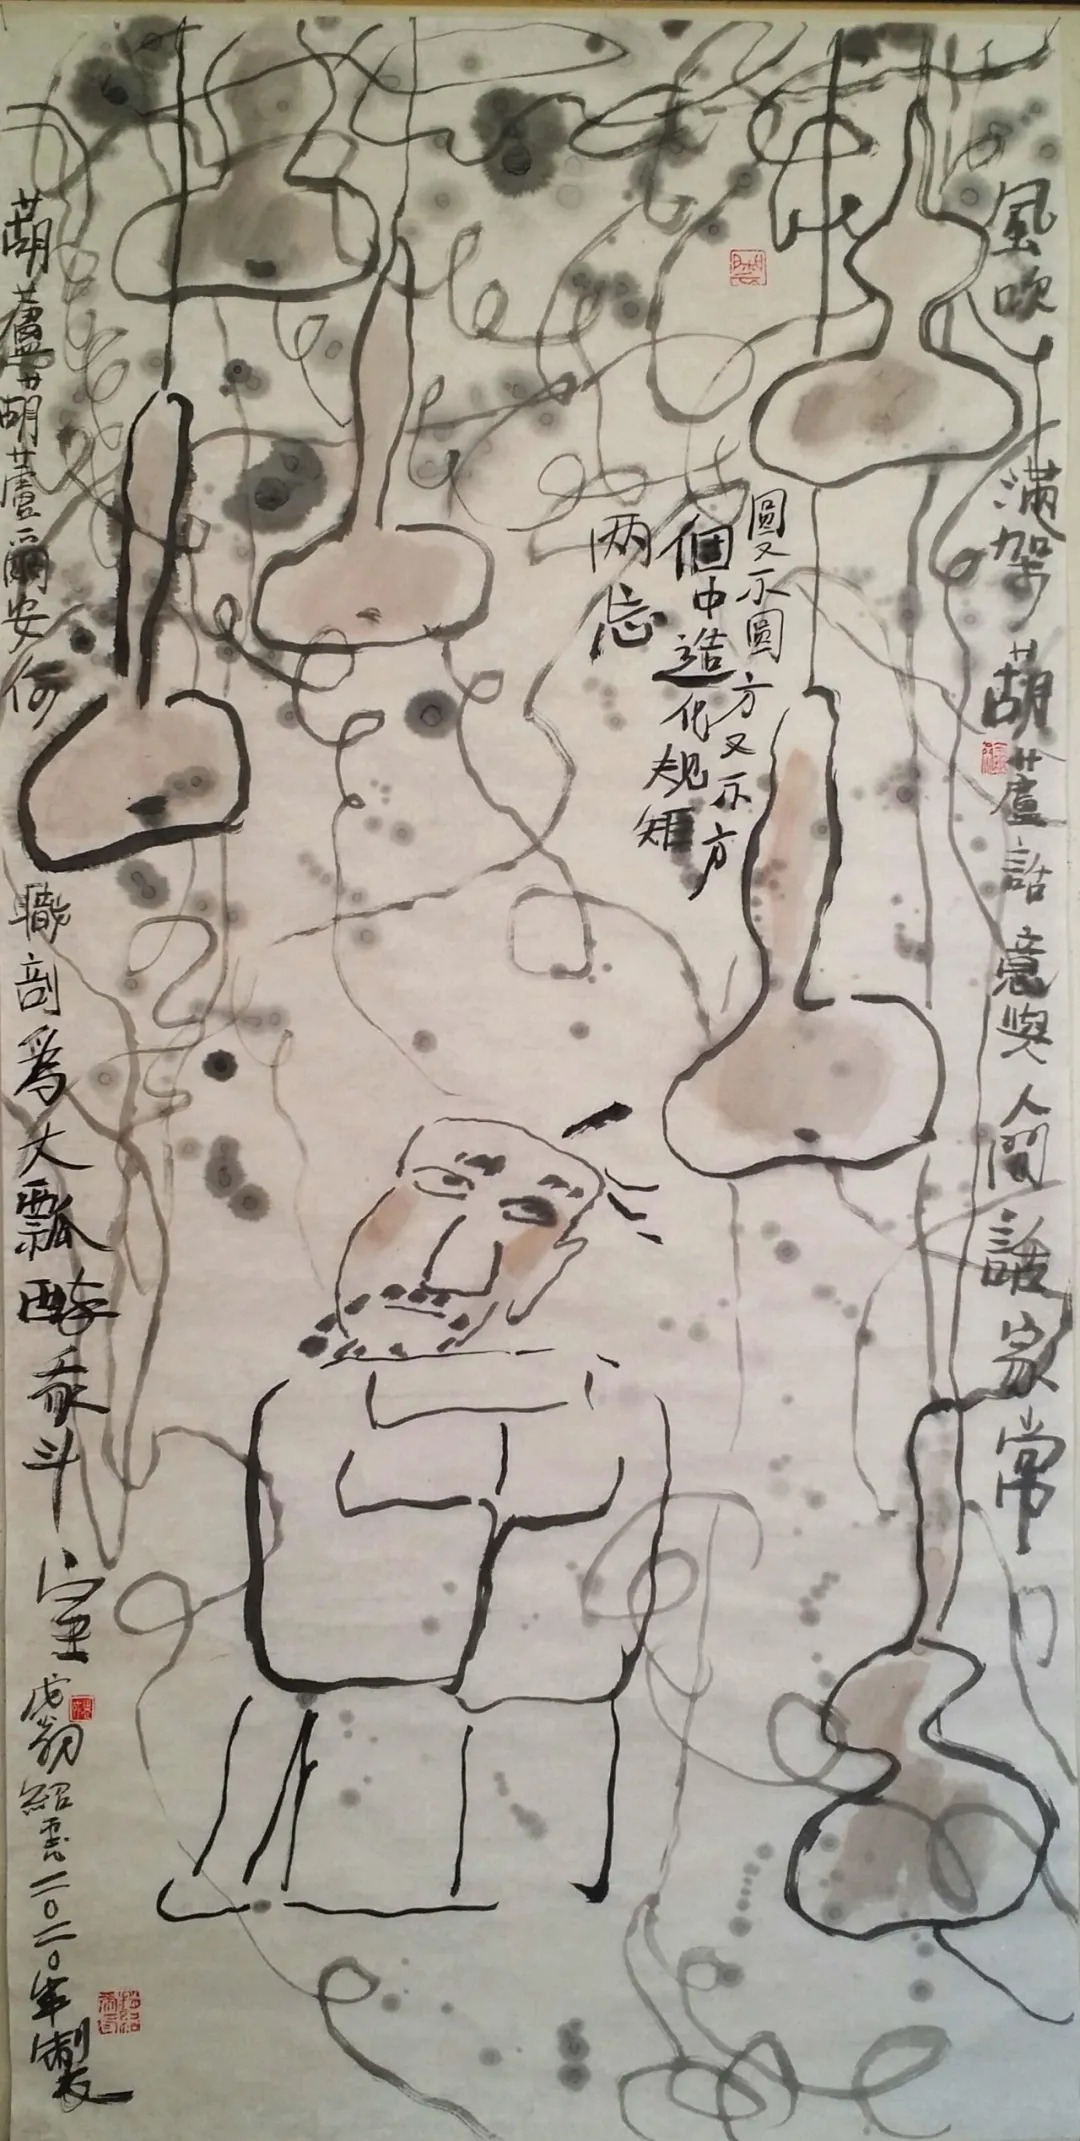 風吹滿架葫蘆話意與人間話家常
圓又不圓方又不方
個中造化規矩
两忘
葫蘆葫蘆爾安何職剖爲大瓢醉斗室
翁紹雲二〇二〇年製